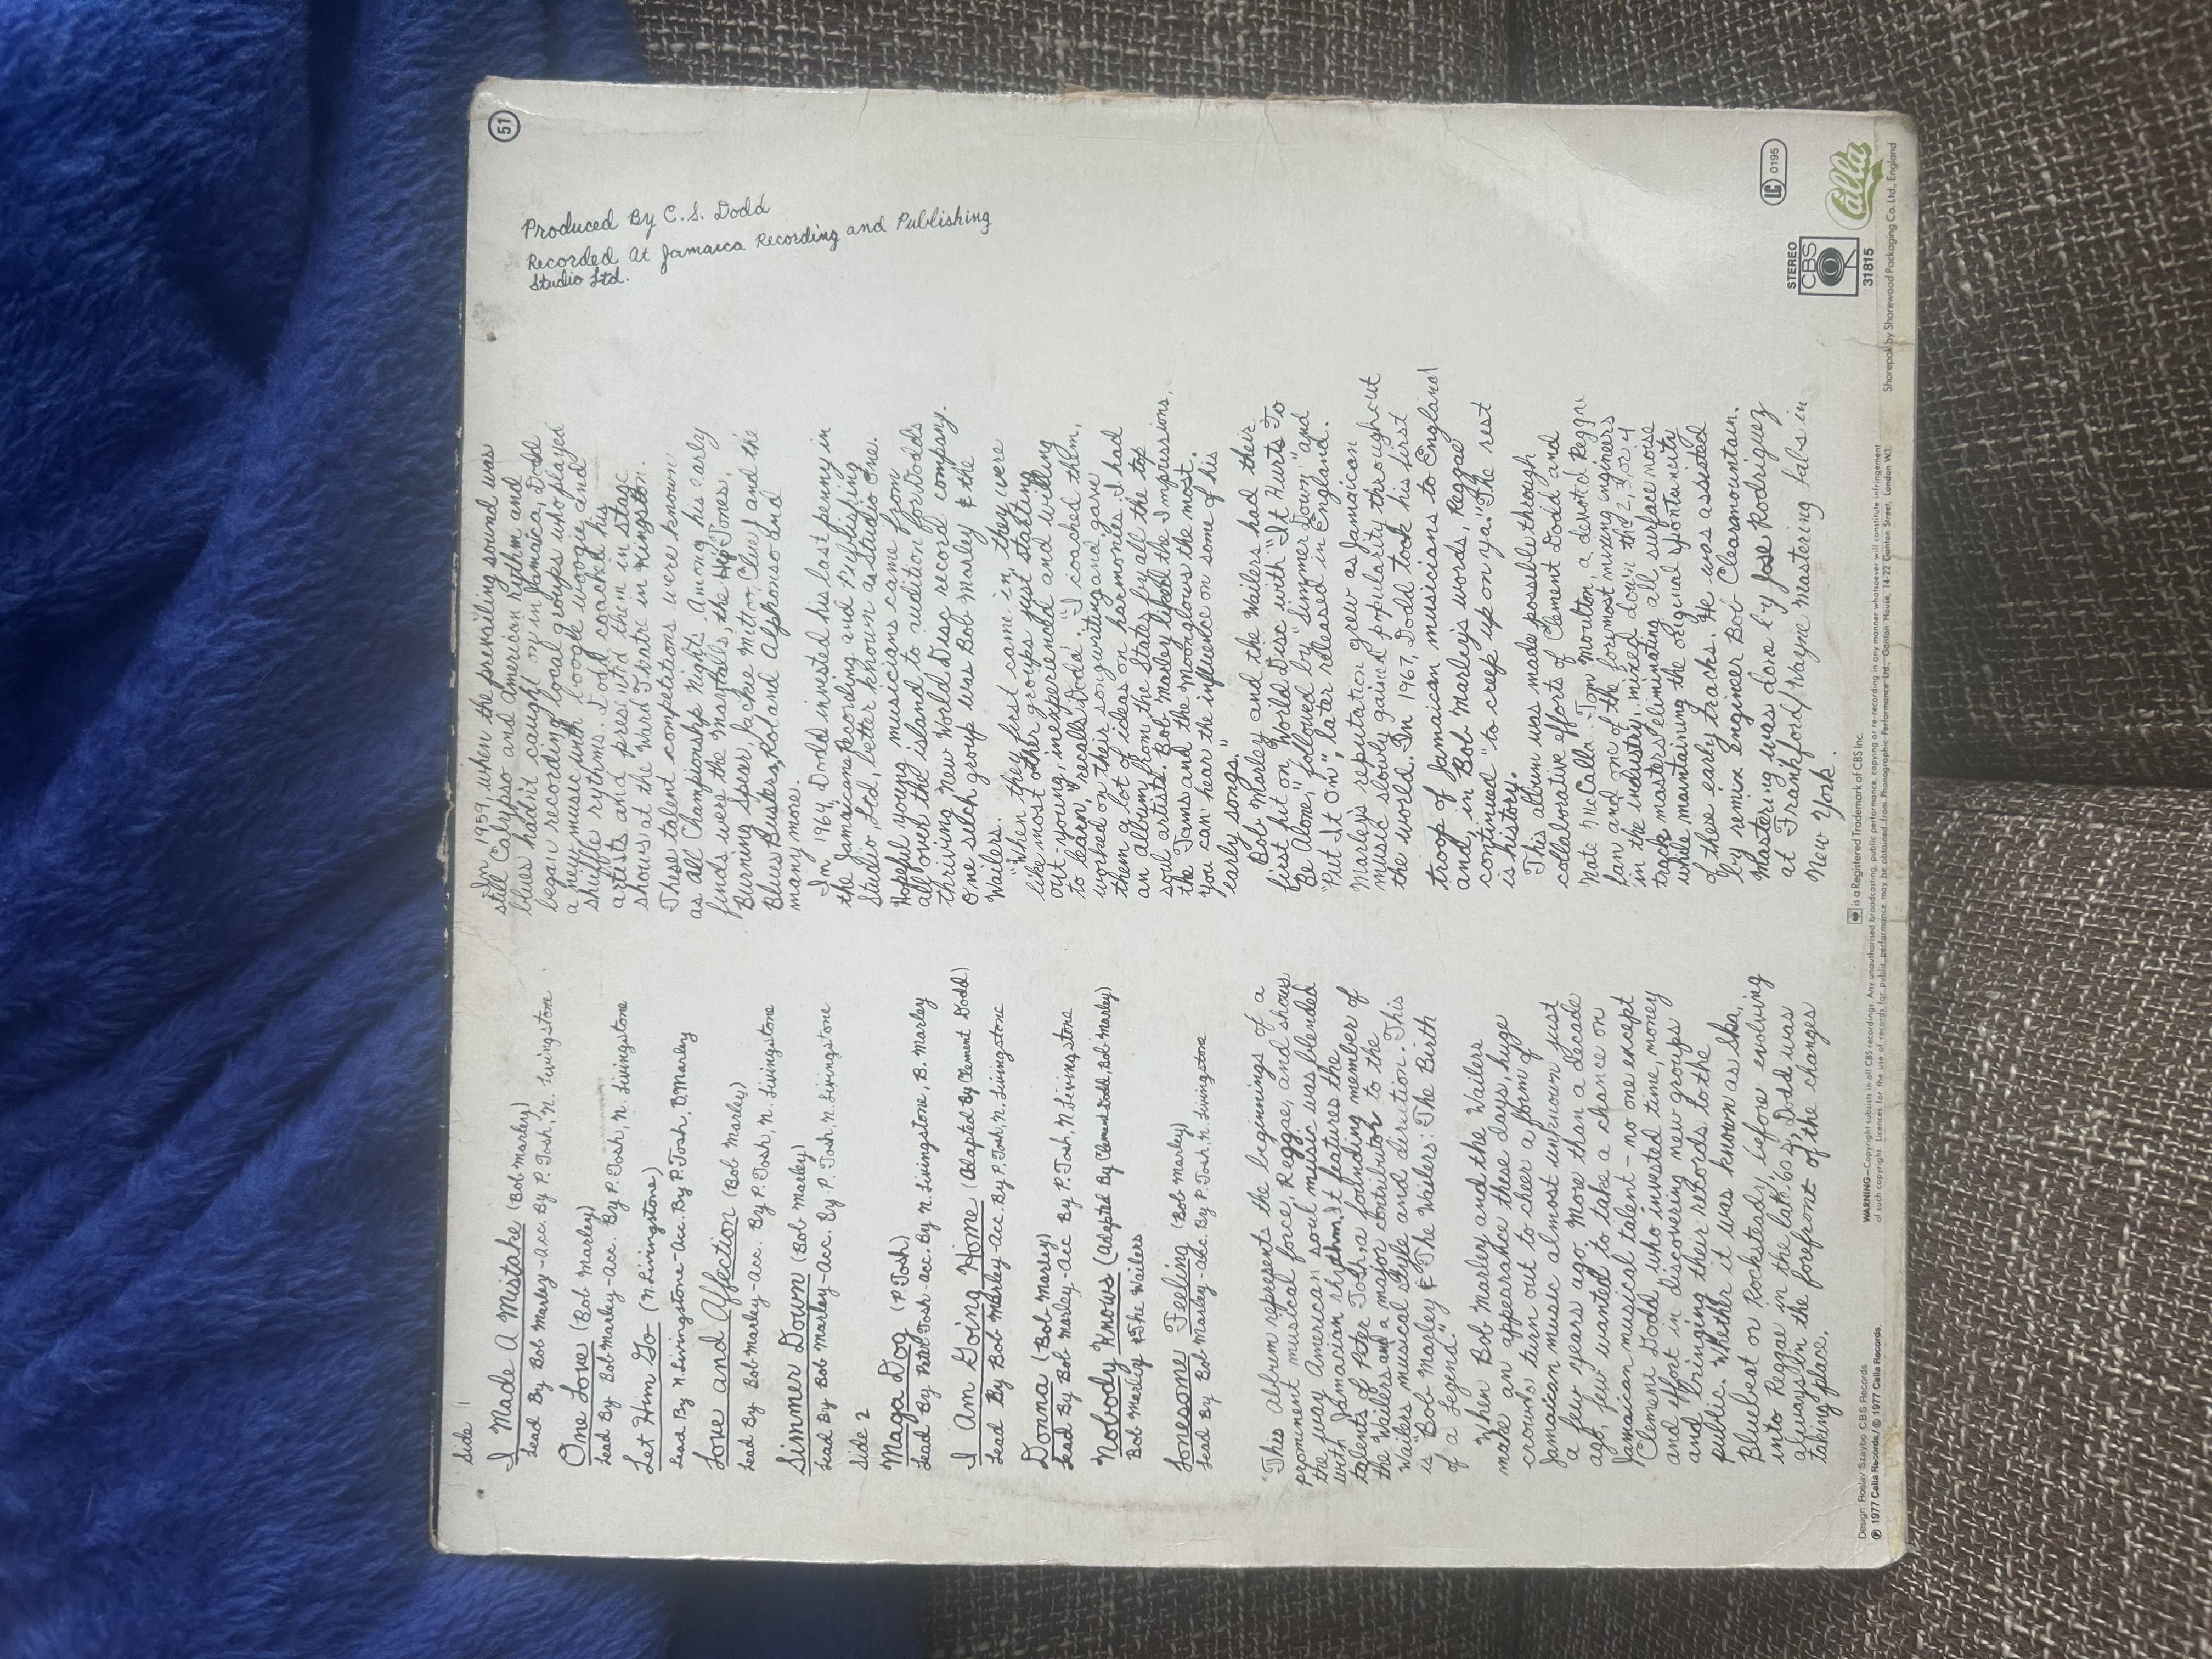 Side 1
I Made A Mistake (Bob Marley)
Lead By Bob Marley-Acc. By P. Tosh, N. Livingstone
One Love (Bob Marley)
Lead By Bob Marley-Acc. By P. Tosh, N. Livingstone
Let Him Go- (N. Livingstone)
Lead By N. Livingstone-Acc. By P. Tosh, B. Marley
Love and Affection (Bob Marley)
Lead By Bob Marley-Acc. By P. Tosh, N. Livingstone
Simmer Down (Bob Marley)
Lead By Bob Marley-Acc. By P. Tosh, N. Livingstone
Side 2
Maga Dog (P. Tosh)
Lead By Peter Tosh-acc. By N. Livingstone, B. Marley
I Am Going Home (Adapted By Clement Dodd)
Lead By Bob Marley-Acc. By P. Tosh, N. Livingstone
Donna (Bob Marley)
Lead By Bob Marley-Acc By P. Tosh, N Livingstone
Nobody Knows (Adapted By Clement Dodd, Bob Marley)
Bob Marley & The Wailers
Lonesome Feeling (Bob Marley)
Lead By Bob Marley-acc. By P. Tosh, N. Livingstone
"This Album represents the beginnings of a
prominent musical force, Reggae, and shows
the way American soul music was blended
with Jamaican rhythm. It features the
talents of Peter Tosh, a founding member of
the Wailers and a major contributor to the
Wailers musical style and direction. This
is "Bob Marley & The Wailers: The Birth
of a Legend."
When Bob Marley and the Wailers
make an appearance these days, huge
crowds turn out to cheer a form of
Jamaican music almost unknown just
a few years ago. More than a decade
ago, few wanted to take a chance on
Jamaican musical talent - no one except
Clement Dodd, who invested time, money
and effort in discovering new groups
and bringing their records to the
public. Whether it was known as Ska,
Bluebeat or Rocksteady before evolving
into Reggae in the late '60s, Dodd was
always in the forefront of the changes
taking place.
In 1959, when the prevailing sound was
still Calypso and American rythm and
blues hadn't caught on in Jamaica, Dodd
began recording local groups who played
a new music with boogie woogie and
shuffle rythms. Dodd coached his
artists and presented them in stage
shows at the Ward Theatre in Kingston.
These talent competitions were known
as All Championship Nights. Among his early
finds were the Maytalls, the Hep Tones,
Burning Spear, Jackie Mittoo, Clue J and the
Blues Busters, Roland Alphonso and
many more.
In 1964, Dodd invested his last penny in
the Jamaican Recording and Publishing
Studio, Ltd, better known as Studio One.
Hopeful young musicians came from
all over the island to audition for Dodds
thriving New World Disc record company.
One such group was Bob Marley & the
Wailers.
"When they first came in, they were
like most other groups just starting
out-young, inexperienced and willing
to learn," recalls Dodd. "I coached them,
worked on their songwriting and gave
them a lot of ideas on harmonies. I had
an album from the States by all the top
soul artists. Bob Marley liked the Impressions,
the Tams and the Moonglows the most.
You can hear the influence on some of his
early songs."
Bob Marley and the Wailers had their
first hit on World Disc with "It Hurts To
Be Alone," followed by "Simmer Down" and
"Put It On", later released in England.
Marley's reputation grew as Jamaican
music slowly gained popularity throughout
the world. In 1967, Dodd took his first
troop of Jamaican musicians to England
and, in Bob Marley's words, Reggae
continued "to creep up on ya." The rest
is history.
This album was made possible through
collaborative efforts of Clement Dodd and
Nate McCalla. Tom Moulton, a devoted Reggae
fan and one of the foremost mixing engineers
in the industry, mixed down the 2, 3, or 4
track masters eliminating all surface noise
while maintaining the original spontaneity
of these early tracks. He was assisted
by remix engineer Bob Clearmountain.
Mastering was done by Jose Rodriguez
at Frankford/Wayne Mastering Labs in
New York.
51
Produced By C.S. Dodd
Recorded At Jamaica Recording and Publishing
Studio Ltd.
LC 0195
STEREO
CBS
31815
Calla
Design: Roslav Szaybo CBS Records
℗ 1977 Calla Records / © 1977 Calla Records.
CBS is a Registered Trademark of CBS Inc.
WARNING—Copyright subsists in all CBS recordings. Any unauthorised broadcasting, public performance, copying or re-recording in any manner whatsoever will constitute infringement
of such copyright. Licences for the use of records for public performance may be obtained from Phonographic Performance Ltd., Ganton House, 14-22 Ganton Street, London W.1.
Shorepak by Shorewood Packaging Co. Ltd., England